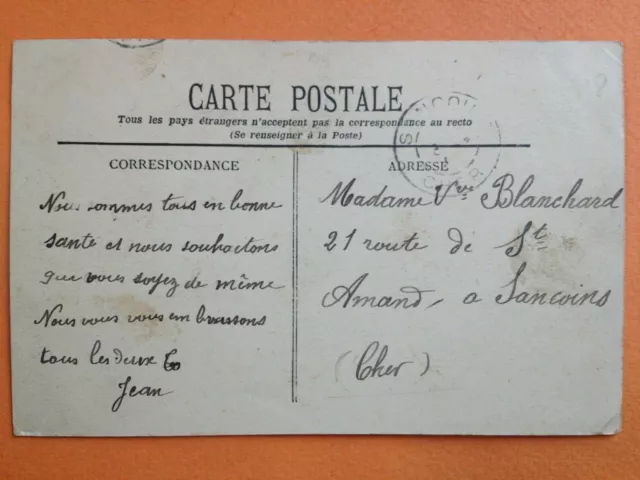 CARTE POSTALE
Tous les pays étrangers n'acceptent pas la correspondance au recto
(Se renseigner à la Poste)
CORRESPONDANCE
Nous sommes tous en bonne
santé et nous souhaitons
que vous soyez de même
Nous vous vous embrassons
tous les deux
Jean
ADRESSE
Madame Vve Blanchard
21 route de St
Amand, a Sancoins
(Cher)